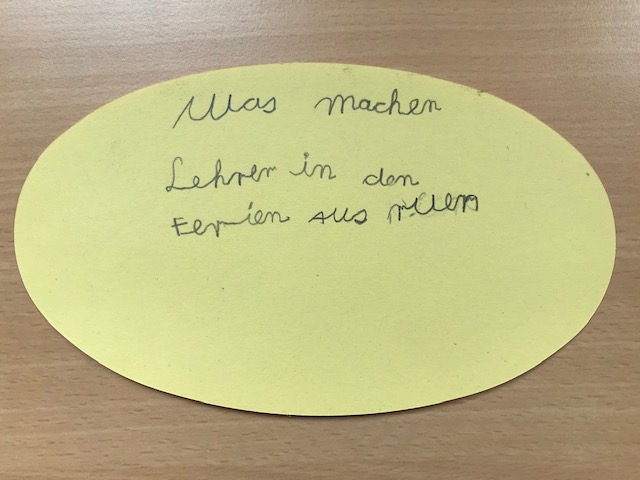 Was machen
Lehrer in den
Ferien aus ruen